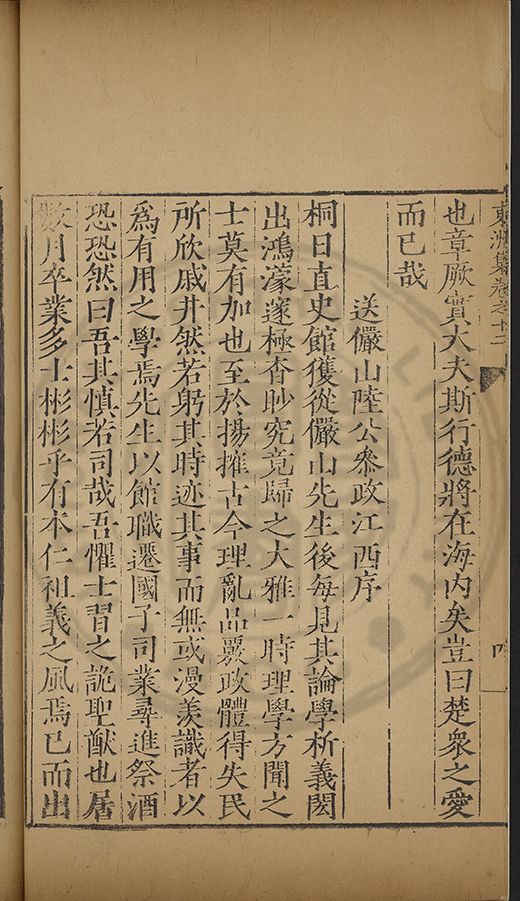 東洲集卷之十二
四
也章厥實大夫斯行德將在海内矣豈曰楚衆之愛
而已哉
送儼山陸公叅政江西序
桐日直史館獲從儼山先生後每見其論學析義閎
出鴻濛邃極杳眇究竟歸之大雅一時理學方聞之
士莫有加也至於揚搉古今理亂品覈政體得失民
所欣戚井然若躬其時迹其事而無或漫羨識者以
爲有用之學焉先生以館職遷國子司業尋進祭酒
恐恐然曰吾其慎若司哉吾懼士習之詭聖猷也居
數月卒業多士彬彬乎有本仁祖義之風焉已而出